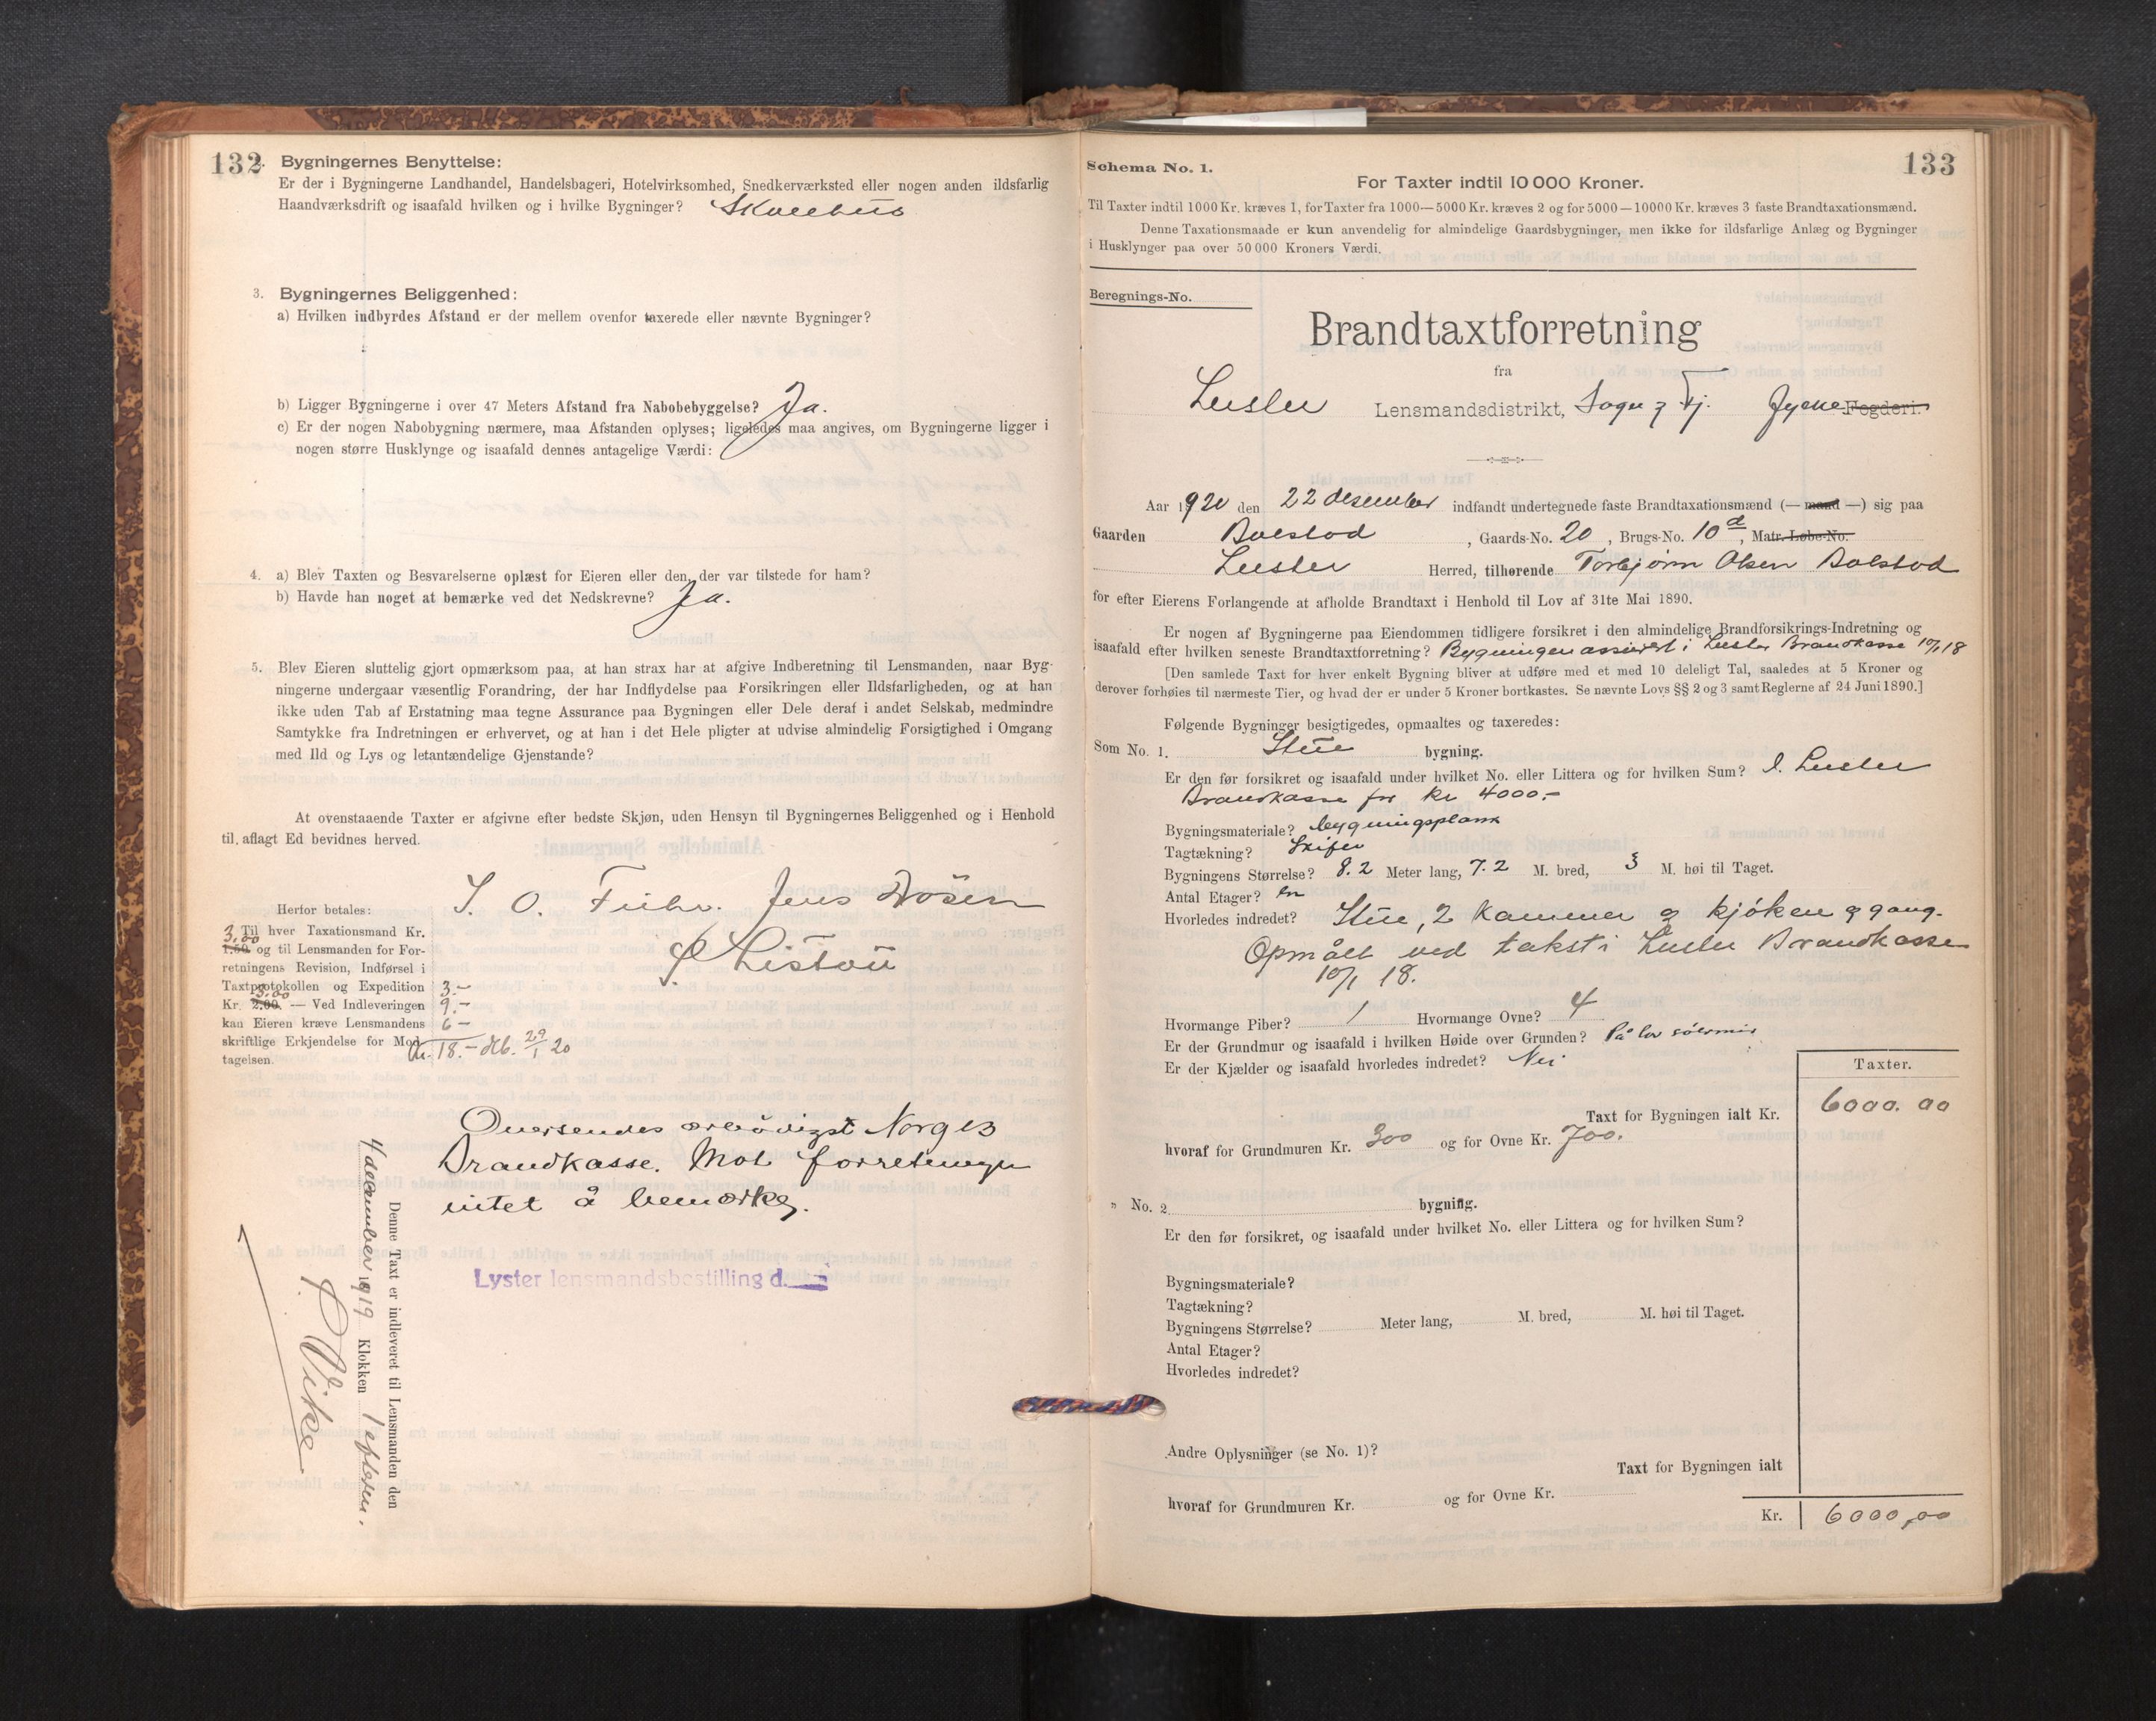 132
2. Bygningernes Benyttelse:
Er der i Bygningerne Landhandel, Handelsbageri, Hotelvirksomhed, Snedkerværksted eller nogen anden ildsfarlig
Haandværksdrift og isaafald hvilken og i hvilke Bygninger? Skulehus
3. Bygningernes Beliggenhed:
a) Hvilken indbyrdes Afstand er der mellem ovenfor taxerede eller nævnte Bygninger?
b) Ligger Bygningerne i over 47 Meters Afstand fra Nabobebyggelse? Ja.
c) Er der nogen Nabobygning nærmere, maa Afstanden oplyses; ligeledes maa angives, om Bygningerne ligger i
nogen større Husklynge og isaafald dennes antagelige Værdi:
4. a) Blev Taxten og Besvarelserne oplæst for Eieren eller den, der var tilstede for ham?
b) Havde han noget at bemærke ved det Nedskrevne? Ja.
5. Blev Eieren sluttelig gjort opmærksom paa, at han strax har at afgive Indberetning til Lensmanden, naar Byg-
ningerne undergaar væsentlig Forandring, der har Indflydelse paa Forsikringen eller Ildsfarligheden, og at han
ikke uden Tab af Erstatning maa tegne Assurance paa Bygningen eller Dele deraf i andet Selskab, medmindre
Samtykke fra Indretningen er erhvervet, og at han i det Hele pligter at udvise almindelig Forsigtighed i Omgang
med Ild og Lys og letantændelige Gjenstande?
At ovenstaaende Taxter er afgivne efter bedste Skjøn, uden Hensyn til Bygningernes Beliggenhed og i Henhold
til aflagt Ed bevidnes herved.
Jens
Herfor betales:
Til hver Taxationsmand Kr.
3,00
1.50 og til Lensmanden for For-
retningens Revision, Indførsel i
Taxtprotokollen og Expedition 3.-
3,00
Kr. 2.00. — Ved Indleveringen 9.-
kan Eieren kræve Lensmandens 6 -
skriftlige Erkjendelse for Mod- Kr. 18.- 29/1 20
tagelsen.
Oversendes ærbødigst Norges
Brandkasse. Mot forretningen
intet å bemærke.
Lyster lensmandsbestilling d.
Denne Taxt er indleveret til Lensmanden den
4 december 1919 Klokken 1 eftern.
Vike
133
Schema No. 1.
For Taxter indtil 10 000 Kroner.
Til Taxter indtil 1000 Kr. kræves 1, for Taxter fra 1000—5000 Kr. kræves 2 og for 5000—10000 Kr. kræves 3 faste Brandtaxationsmænd.
Denne Taxationsmaade er kun anvendelig for almindelige Gaardsbygninger, men ikke for ildsfarlige Anlæg og Bygninger
i Husklynger paa over 50 000 Kroners Værdi.
Beregnings-No.
Brandtaxtforretning
fra
Luster Lensmandsdistrikt, Sogn og Fj. Fylke Fogderi.
Aar 1920 den 22 desember indfandt undertegnede faste Brandtaxationsmænd (— mand —) sig paa
Gaarden Bolstad, Gaards-No. 20, Brugs-No. 10 d, Matr. Løbe-No.
Luster Herred, tilhørende Torbjørn Olsen Bolstad
for efter Eierens Forlangende at afholde Brandtaxt i Henhold til Lov af 31te Mai 1890.
Er nogen af Bygningerne paa Eiendommen tidligere forsikret i den almindelige Brandforsikrings-Indretning og
isaafald efter hvilken seneste Brandtaxtforretning? Bygningen assurert i Luster Brandkasse 10/1 18
[Den samlede Taxt for hver enkelt Bygning bliver at udføre med et med 10 deleligt Tal, saaledes at 5 Kroner og
derover forhøies til nærmeste Tier, og hvad der er under 5 Kroner bortkastes. Se nævnte Lovs §§ 2 og 3 samt Reglerne af 24 Juni 1890.]
Følgende Bygninger besigtigedes, opmaaltes og taxeredes:
Som No. 1. Stue bygning.
Er den før forsikret og isaafald under hvilket No. eller Littera og for hvilken Sum? I Luster
Brandkasse for kr 4000.-
Bygningsmateriale? bygningsplank
Tagtækning? Skifer
Bygningens Størrelse? 8.2 Meter lang, 7.2 M. bred, 3 M. høi til Taget.
Antal Etager? en
Hvorledes indredet? Stue, 2 kammer og kjøken og gang.
Opmålt ved takst i Luster Brandkasse
10/1 18.
Hvormange Piber? 1 Hvormange Ovne? 4
Er der Grundmur og isaafald i hvilken Høide over Grunden? På lav
Er der Kjælder og isaafald hvorledes indredet? Nei
Taxter.
Taxt for Bygningen ialt Kr. 6000.00
hvoraf for Grundmuren Kr. 300 og for Ovne Kr. 700.
" No. 2 bygning.
Er den før forsikret, og isaafald under hvilket No. eller Littera og for hvilken Sum?
Bygningsmateriale?
Tagtækning?
Bygningens Størrelse? Meter lang, M. bred, M. høi til Taget.
Antal Etager?
Hvorledes indredet?
Andre Oplysninger (se No. 1)?
Taxt for Bygningen ialt
hvoraf for Grundmuren Kr. og for Ovne Kr.
Kr. 6000,00